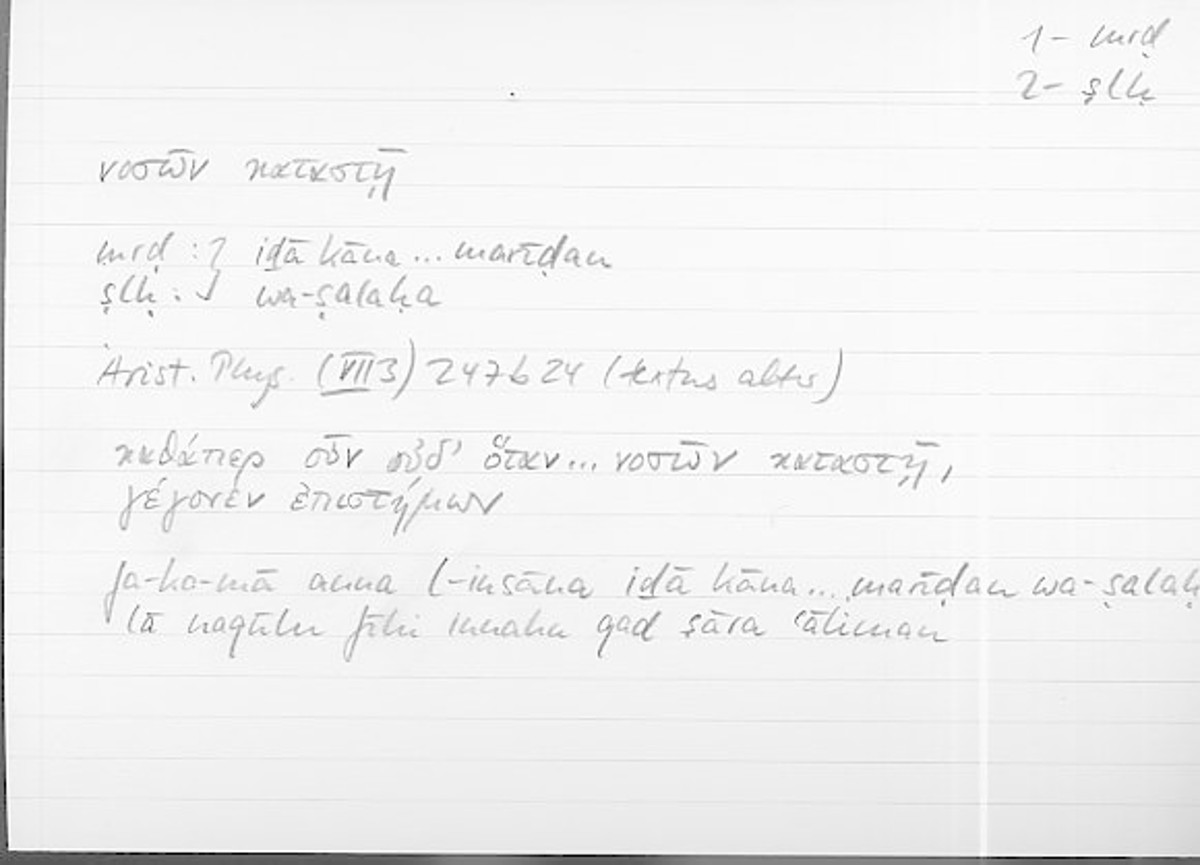 1- mrḍ
2- ṣlḥ
νοσῶν καταστῇ
mrḍ : iḏā kāna ... marīḍan
ṣlḥ : wa-ṣalaḥa
Arist. Phys. (VII 3) 247b24 (textus alter)
καθάπερ οὖν οὐδ' ὅταν... νοσῶν καταστῇ,
γέγονεν ἐπιστήμων
fa-ka-mā anna l-insāna iḏā kāna... marīḍan wa-ṣalaḥ
lā naqūlu fīhi innahu qad ṣāra ʿāliman